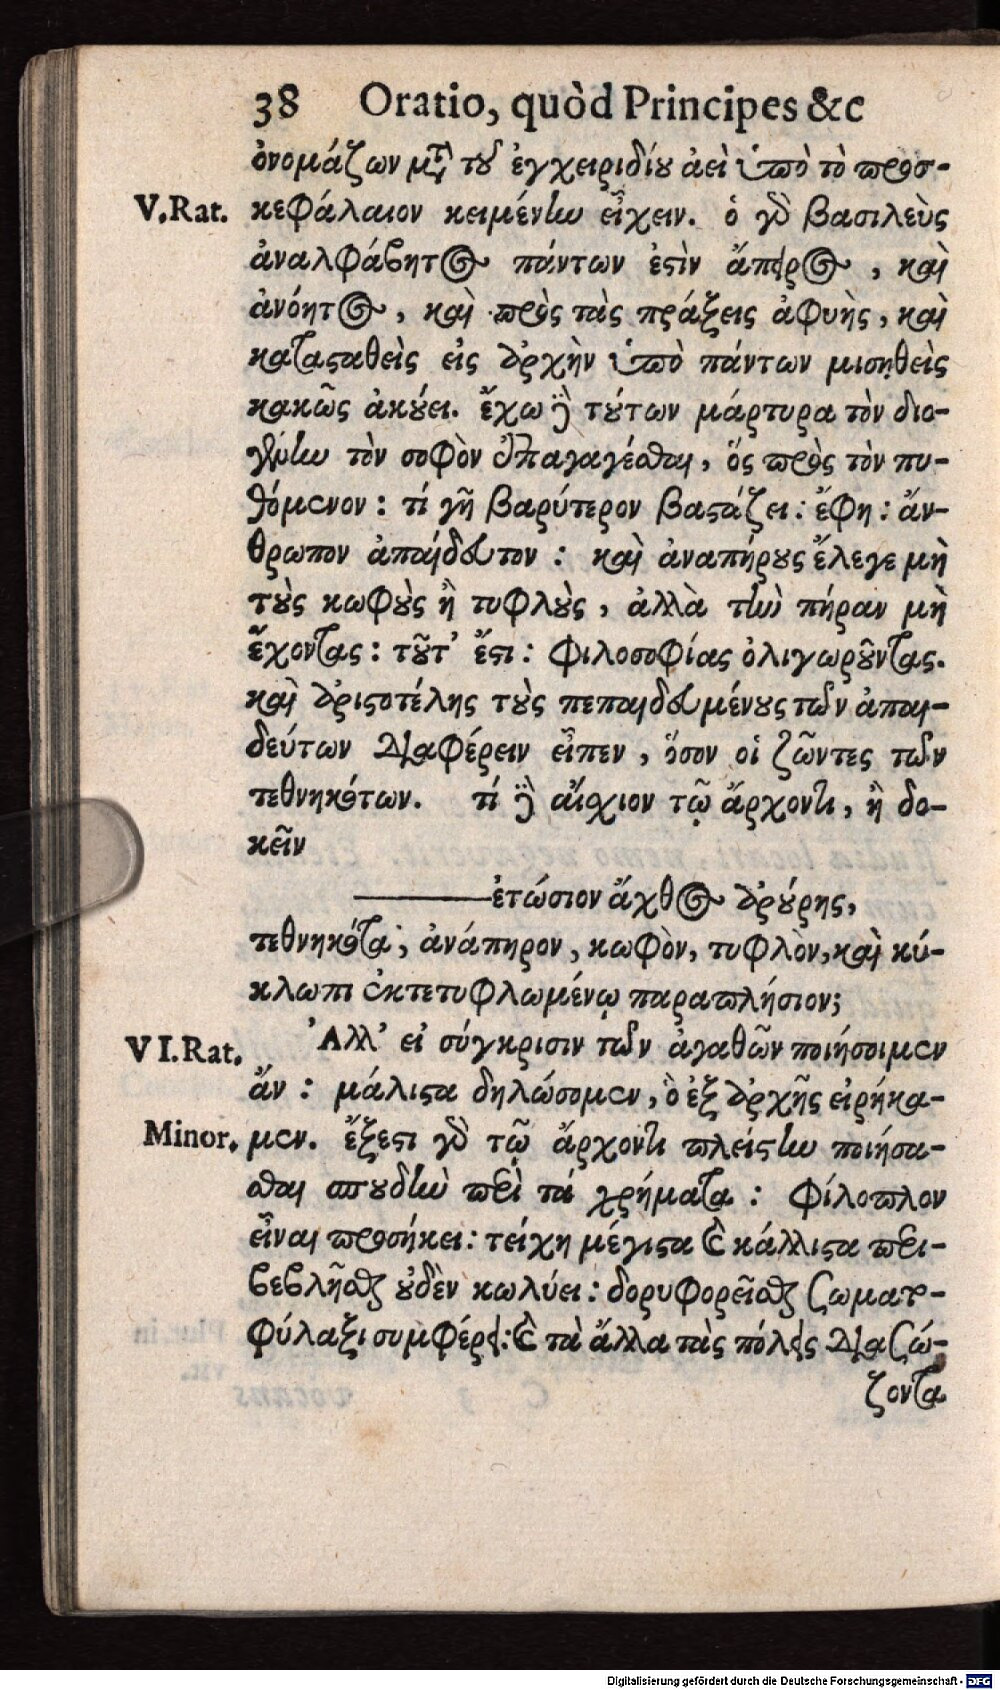 38 Oratio, quòd Principes &c
ὀνομάζων μετὰ τοῦ ἐγχειριδίου ἀεὶ ὑπὸ τὸ προσ-
V. Rat. κεφάλαιον κειμένην εἶχειν. ὁ γὰρ βασιλεὺς
ἀναλφάβητος πάντων ἐστὶν ἄπειρος, καὶ
ἀνόητος, καὶ πρὸς τὰς πράξεις ἀφυὴς, καὶ
κατασταθεὶς εἰς ἀρχὴν ὑπὸ πάντων μισηθεὶς
κακῶς ἀκούει. ἔχω δὲ τούτων μάρτυρα τὸν διο-
γένην τὸν σοφὸν ἐπαγαγέσθαι, ὅς πρὸς τὸν πυ-
θόμενον: τί γῆ βαρύτερον βαστάζει: ἔφη: ἄν-
θρωπον ἀπαίδευτον: καὶ ἀναπήρους ἔλεγε μὴ
τοὺς κωφοὺς ἢ τυφλοὺς, ἀλλὰ τὴν πήραν μὴ
ἔχοντας: τοῦτ' ἔστι: φιλοσοφίας ὀλιγωροῦντας.
καὶ ἀριστοτέλης τοὺς πεπαιδευμένους τῶν ἀπαι-
δεύτων διαφέρειν εἶπεν, ὅσον οἱ ζῶντες τῶν
τεθνηκότων. τί δὲ αἴσχιον τῷ ἄρχοντι, ἢ δο-
κεῖν
———ἐτώσιον ἄχθος ἀρούρης,
τεθνηκότα, ἀνάπηρον, κωφὸν, τυφλὸν, καὶ κύ-
κλωπι ἐκτετυφλωμένῳ παραπλήσιον;
VI. Rat. Ἀλλ' εἰ σύγκρισιν τῶν ἀγαθῶν ποιήσοιμεν
ἄν: μάλιστα δηλώσομεν, ὃ ἐξ ἀρχῆς εἰρήκα-
Minor. μεν. ἔξεστι γὰρ τῷ ἄρχοντι πλείστην ποιήσα-
σθαι σπουδὴν περὶ τὰ χρήματα: φίλοπλον
εἶναι προσήκει: τείχη μέγιστα καὶ κάλλιστα περι-
βεβλῆσθαι οὐδὲν κωλύει: δορυφορεῖσθαι σωματο-
φύλαξι συμφέρει: καὶ τὰ ἄλλα τὰς πόλεις διασώ-
ζοντα
Digitalisierung gefördert durch die Deutsche Forschungsgemeinschaft - DFG